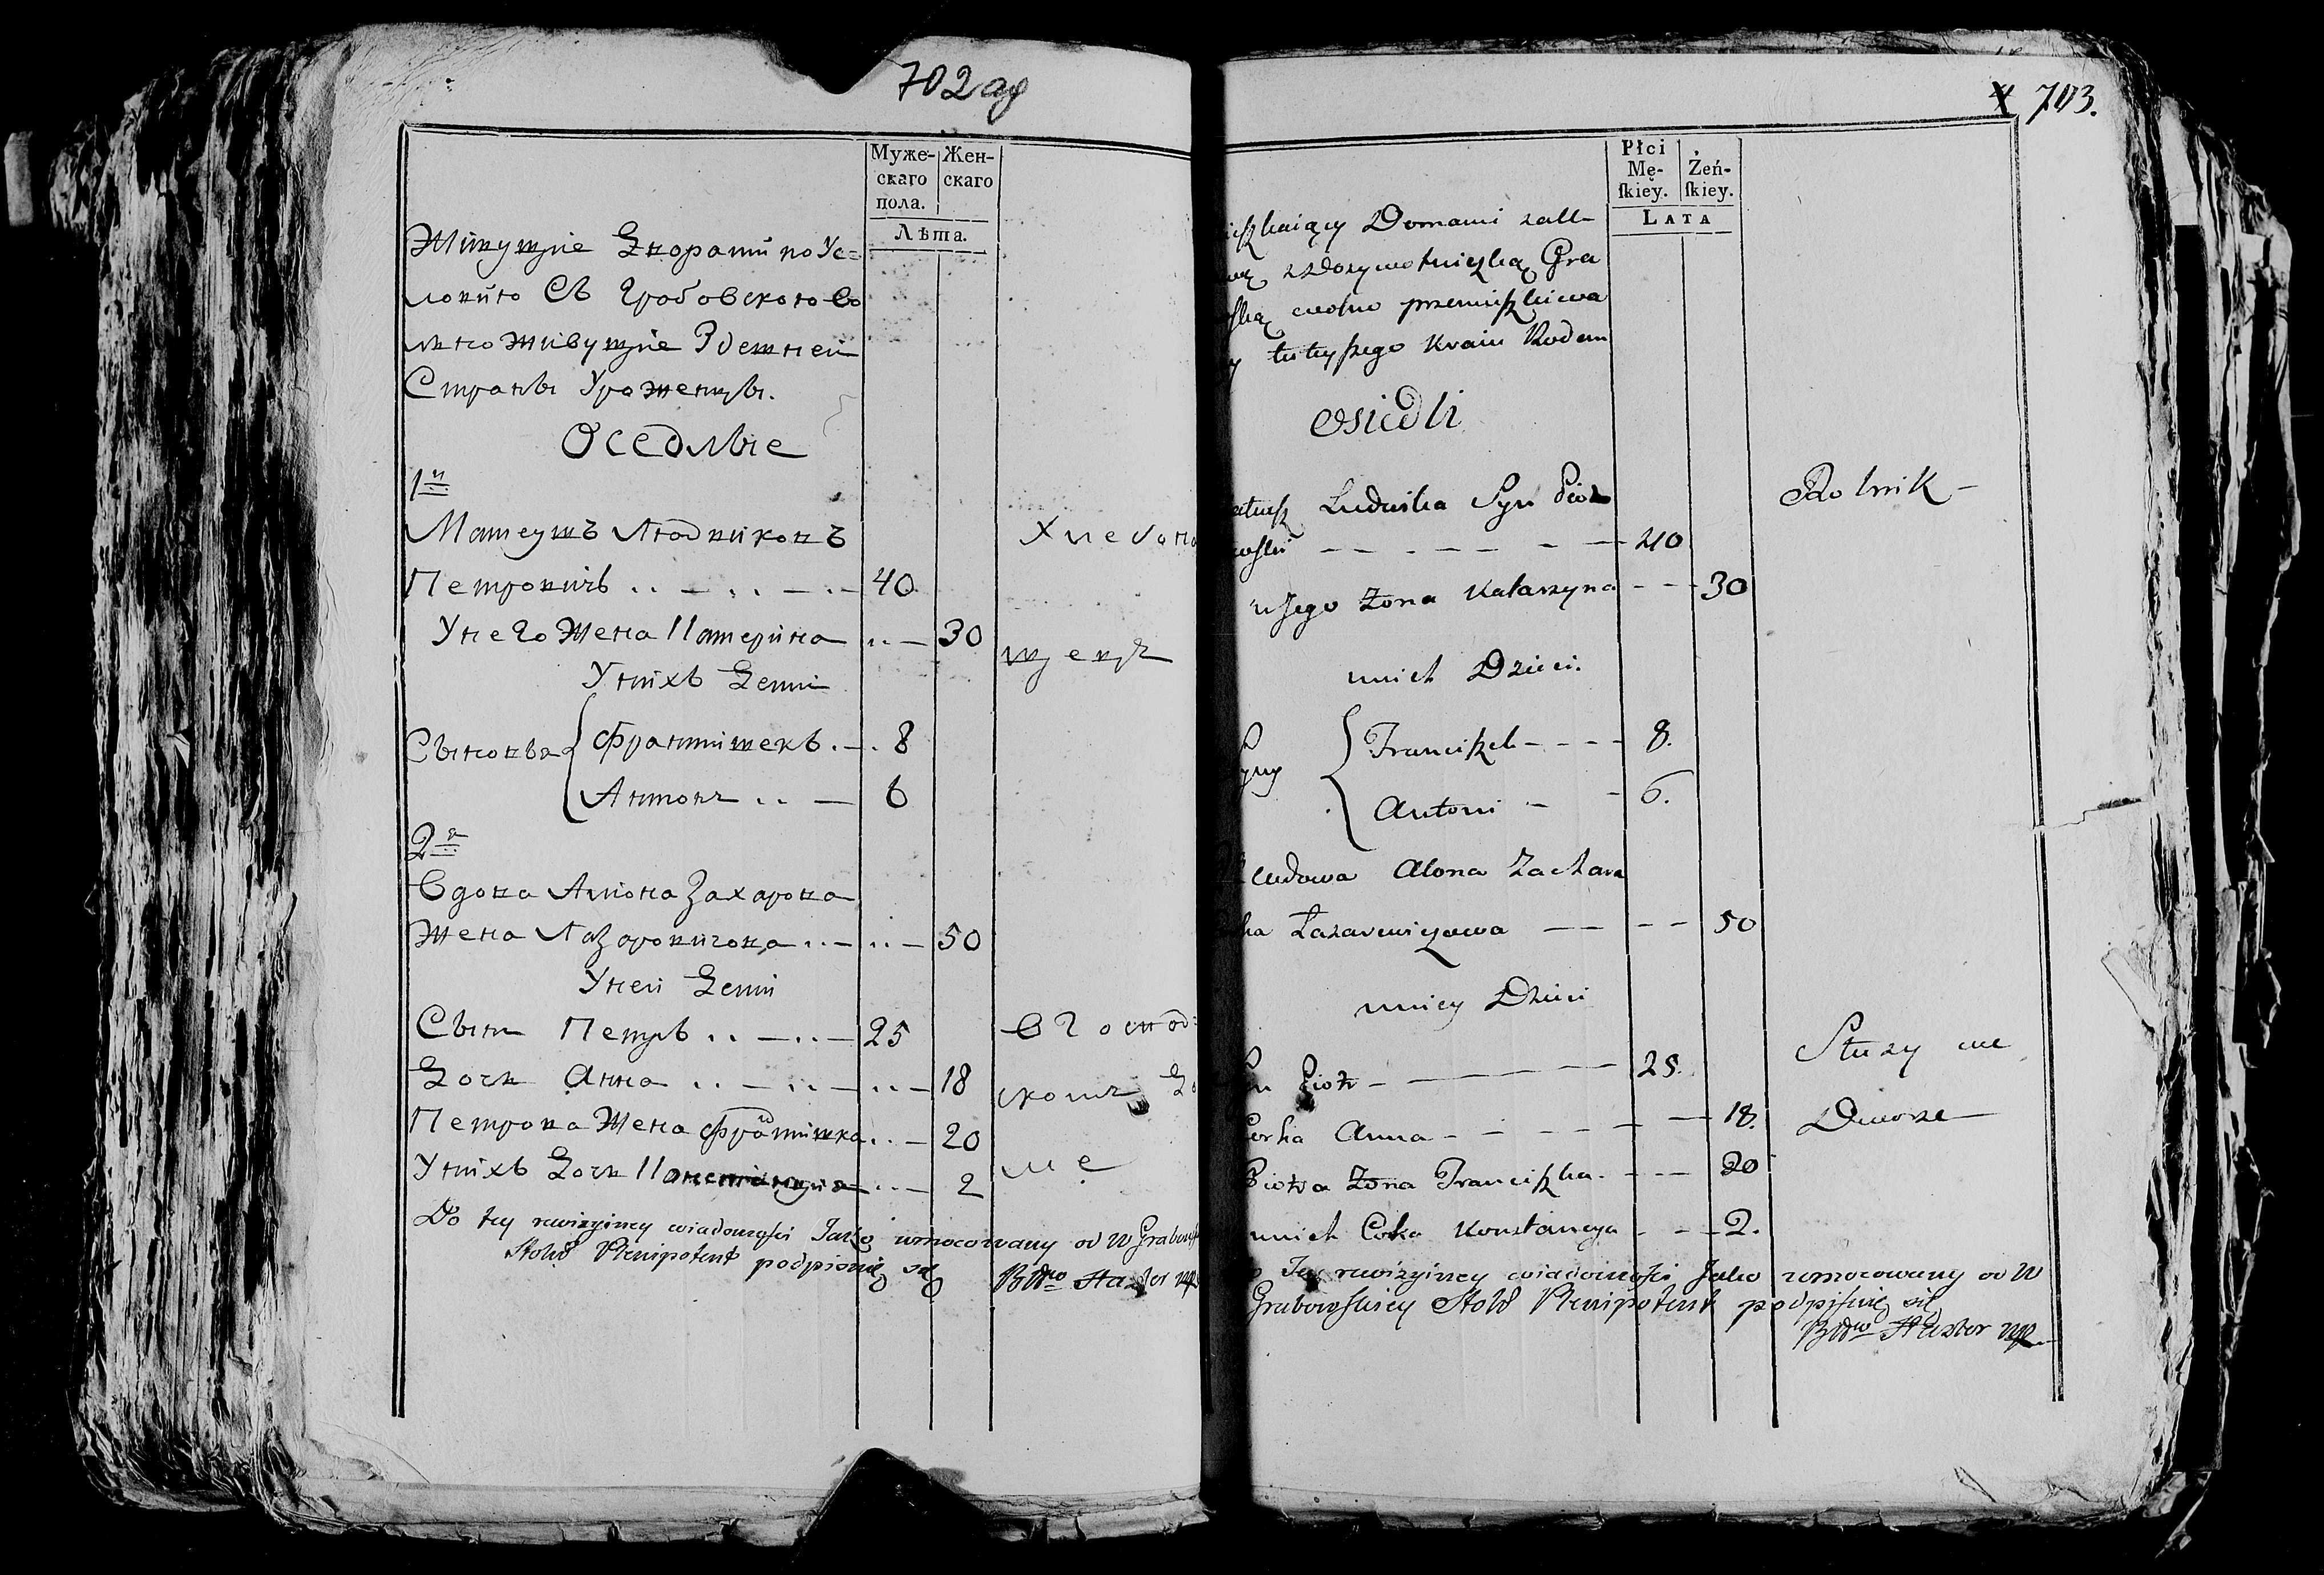 702 аф
Муже-
скаго
пола.
Жен-
скаго
Лѣта.
Живущіе Дворами по Ус=
ловію Съ Грабовскою Во
льно живущіе Здешней
Страны Уроженцы.
Оседлые
1й
Матеушъ Людвиковъ
Петровичъ .. — .. — .. — 40
хлебопа
У него Жена Катерина .. — 30
шецъ
У нихъ Дети
Сыновья
Францишекъ . — . 8
Антонъ .. — 6
2я
Вдова Аліона Захарова
Жена Лазаровичова .. — .. — 50
У ней Дети
Сынъ Петръ .. — .. — 25
в Господ=
Дочь Анна .. — .. — .. — 18
скомъ До
Петрова Жена Францишка .. — 20
ме
У нихъ Дочь Констанція .. — 2
Do tey rewizyiney wiadomości Jako umocowany od W Grabowsk
Stolt Plenipotent podpisuię się
Bldw Haszor mp
4 703.
Płci
Mę-
ſkiey.
Żeń-
ſkiey.
LATA
ieszkaiący Domami za U-
wą z Dożywotniczką Gra
ską wolno przemieszkiwa
y tuteyszego Kraiu Rodem
Osiedli
ateusz Ludwika Syn Piotr
Rolnik —
owski — — . — — — — 40
u Jego Żona Katarzyna — — 30
u nich Dzieci.
yny
Franciszek — — — — 8.
Antoni — — 6.
Wdowa Alona Zachara
ka Łazarewiczowa — — — — 50
u niey Dzieci
yn Piotr — — — — — 25.
Służy we
Corka Anna — — — — — 18.
Dworze —
Piotra Żona Franciszka. — — — 20
u nich Corka Konstancya — — — 2.
o Tey rewizyiney wiadomości Jako umocowany od W
Grabowskiey Stolt Plenipotent podpisuię się
Bldw Haszor mp